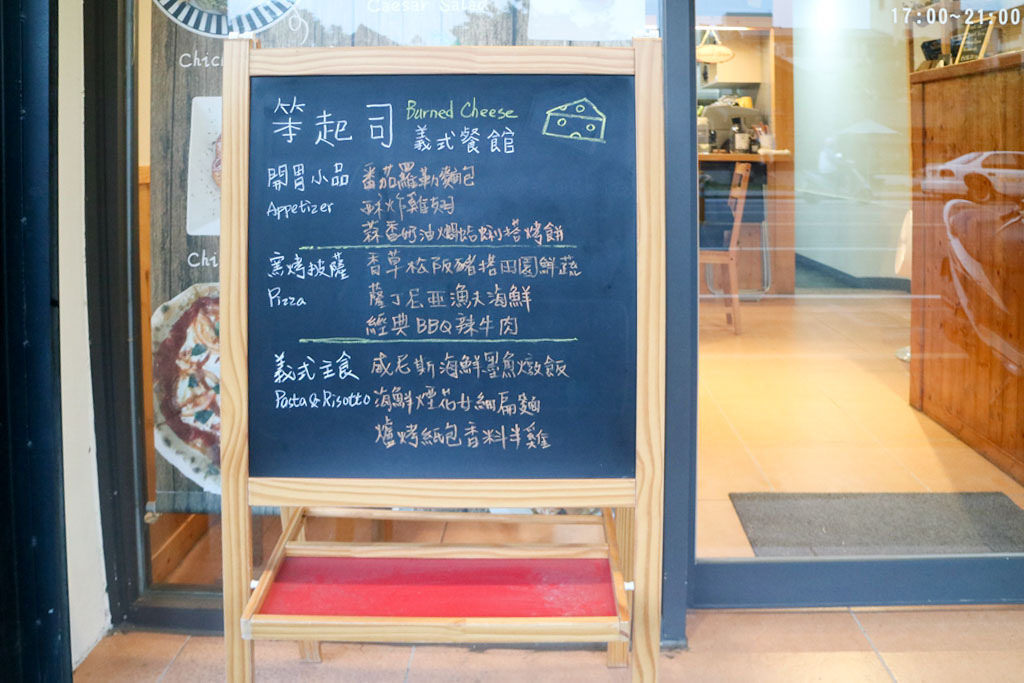 Caesar Salad
17:00~21:00
Chic
Chi
笨起司 Burned Cheese
義式餐館
開胃小品 番茄羅勒麵包
Appetizer 酥炸雞翅
蒜香奶油燜蛤蜊搭烤餅
窯烤披薩 香草松阪豬搭田園鮮蔬
Pizza 薩丁尼亞漁夫海鮮
經典BBQ辣牛肉
義式主食 威尼斯海鮮墨魚燉飯
Pasta & Risotto 海鮮煙花女細扁麵
爐烤紙包香料半雞